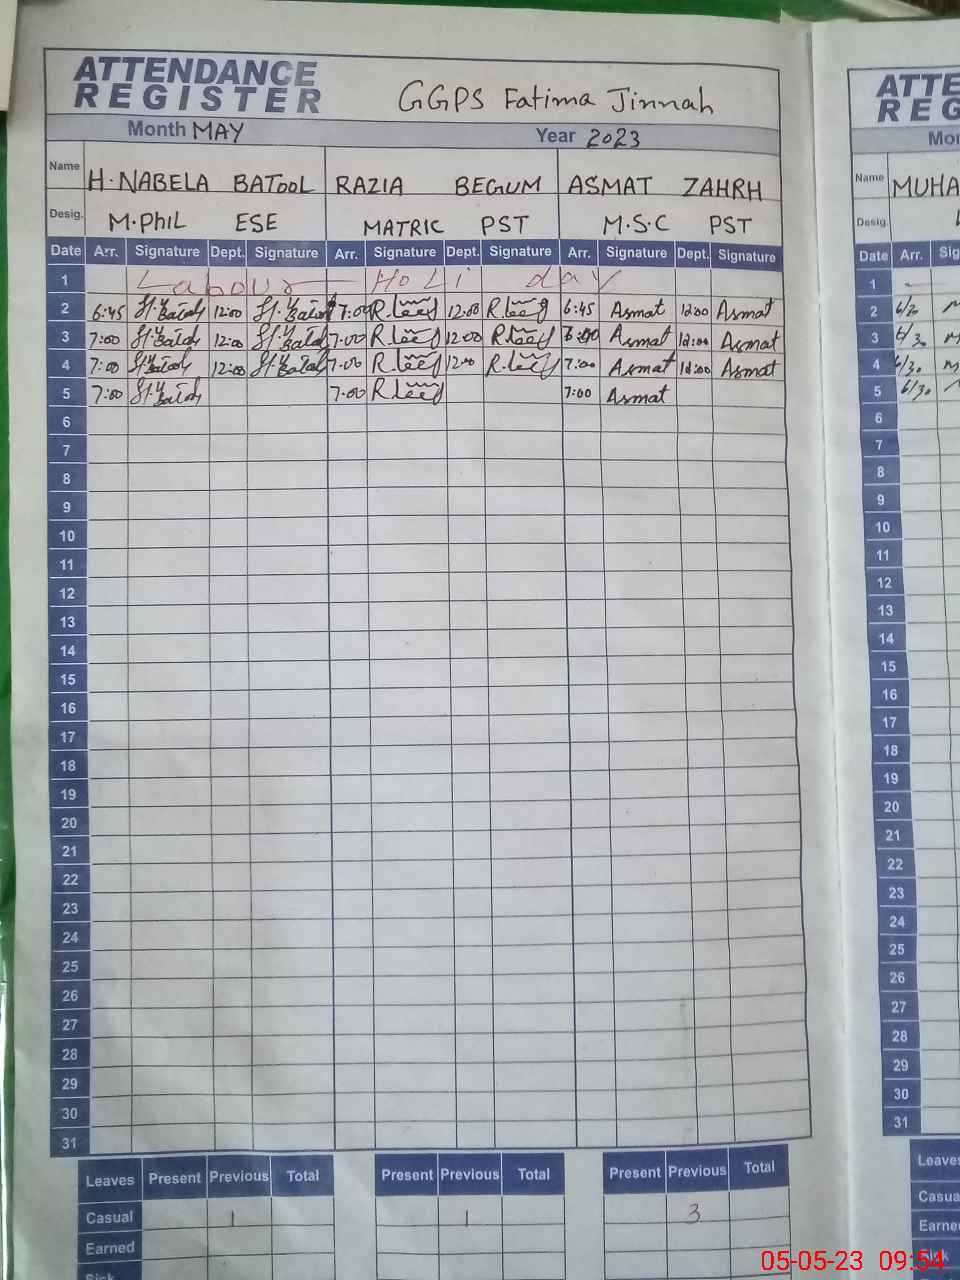 ATTENDANCE
REGISTER
GGPS Fatima Jinnah
Month MAY Year 2023
Name H.NABELA BATOOL RAZIA BEGUM ASMAT ZAHRH
Desig. M.Phil ESE MATRIC PST M.S.C PST
Date Arr. Signature Dept. Signature Arr. Signature Dept. Signature Arr. Signature Dept. Signature
1 Labour Holi day
2 6:45 12:00 7:00 12:00 6:45 Asmat Asmat
3 7:00 12:00 7:00 12:00 Asmat Asmat
4 7:00 12:00 7:00 7:00 Asmat Asmat
5 7:00 7:00 7:00 Asmat
6
7
8
9
10
11
12
13
14
15
16
17
18
19
20
21
22
23
24
25
26
27
28
29
30
31
Leaves Present Previous Total Present Previous Total Present Previous Total
Casual 1 1 3
Earned
Sick
ATTE
REG
Mon
Name MUHA
Desig.
Date Arr. Sig
1
2 6/30
3 6/30
4 6/30
5 6/30
6
7
8
9
10
11
12
13
14
15
16
17
18
19
20
21
22
23
24
25
26
27
28
29
30
31
Leaves
Casua
Earne
Sick
05-05-23 09:54